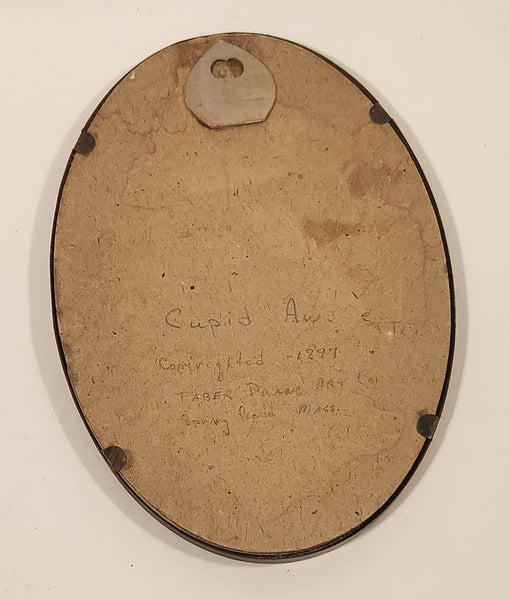 Cupid Awake
Copyrighted - 1897
TABER PRANG ART Co.
Springfield Mass.